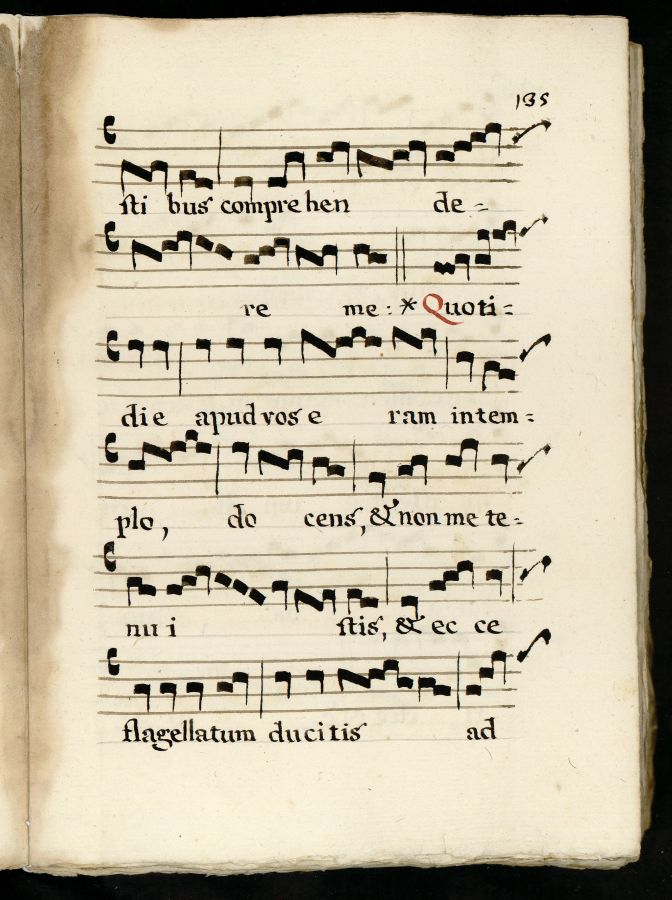 135
sti bus comprehen de-
re me: * Quoti-
die apud vos e ram in tem-
plo, do cens, & non me te-
nu i stis, & ec ce
flagellatum ducitis ad